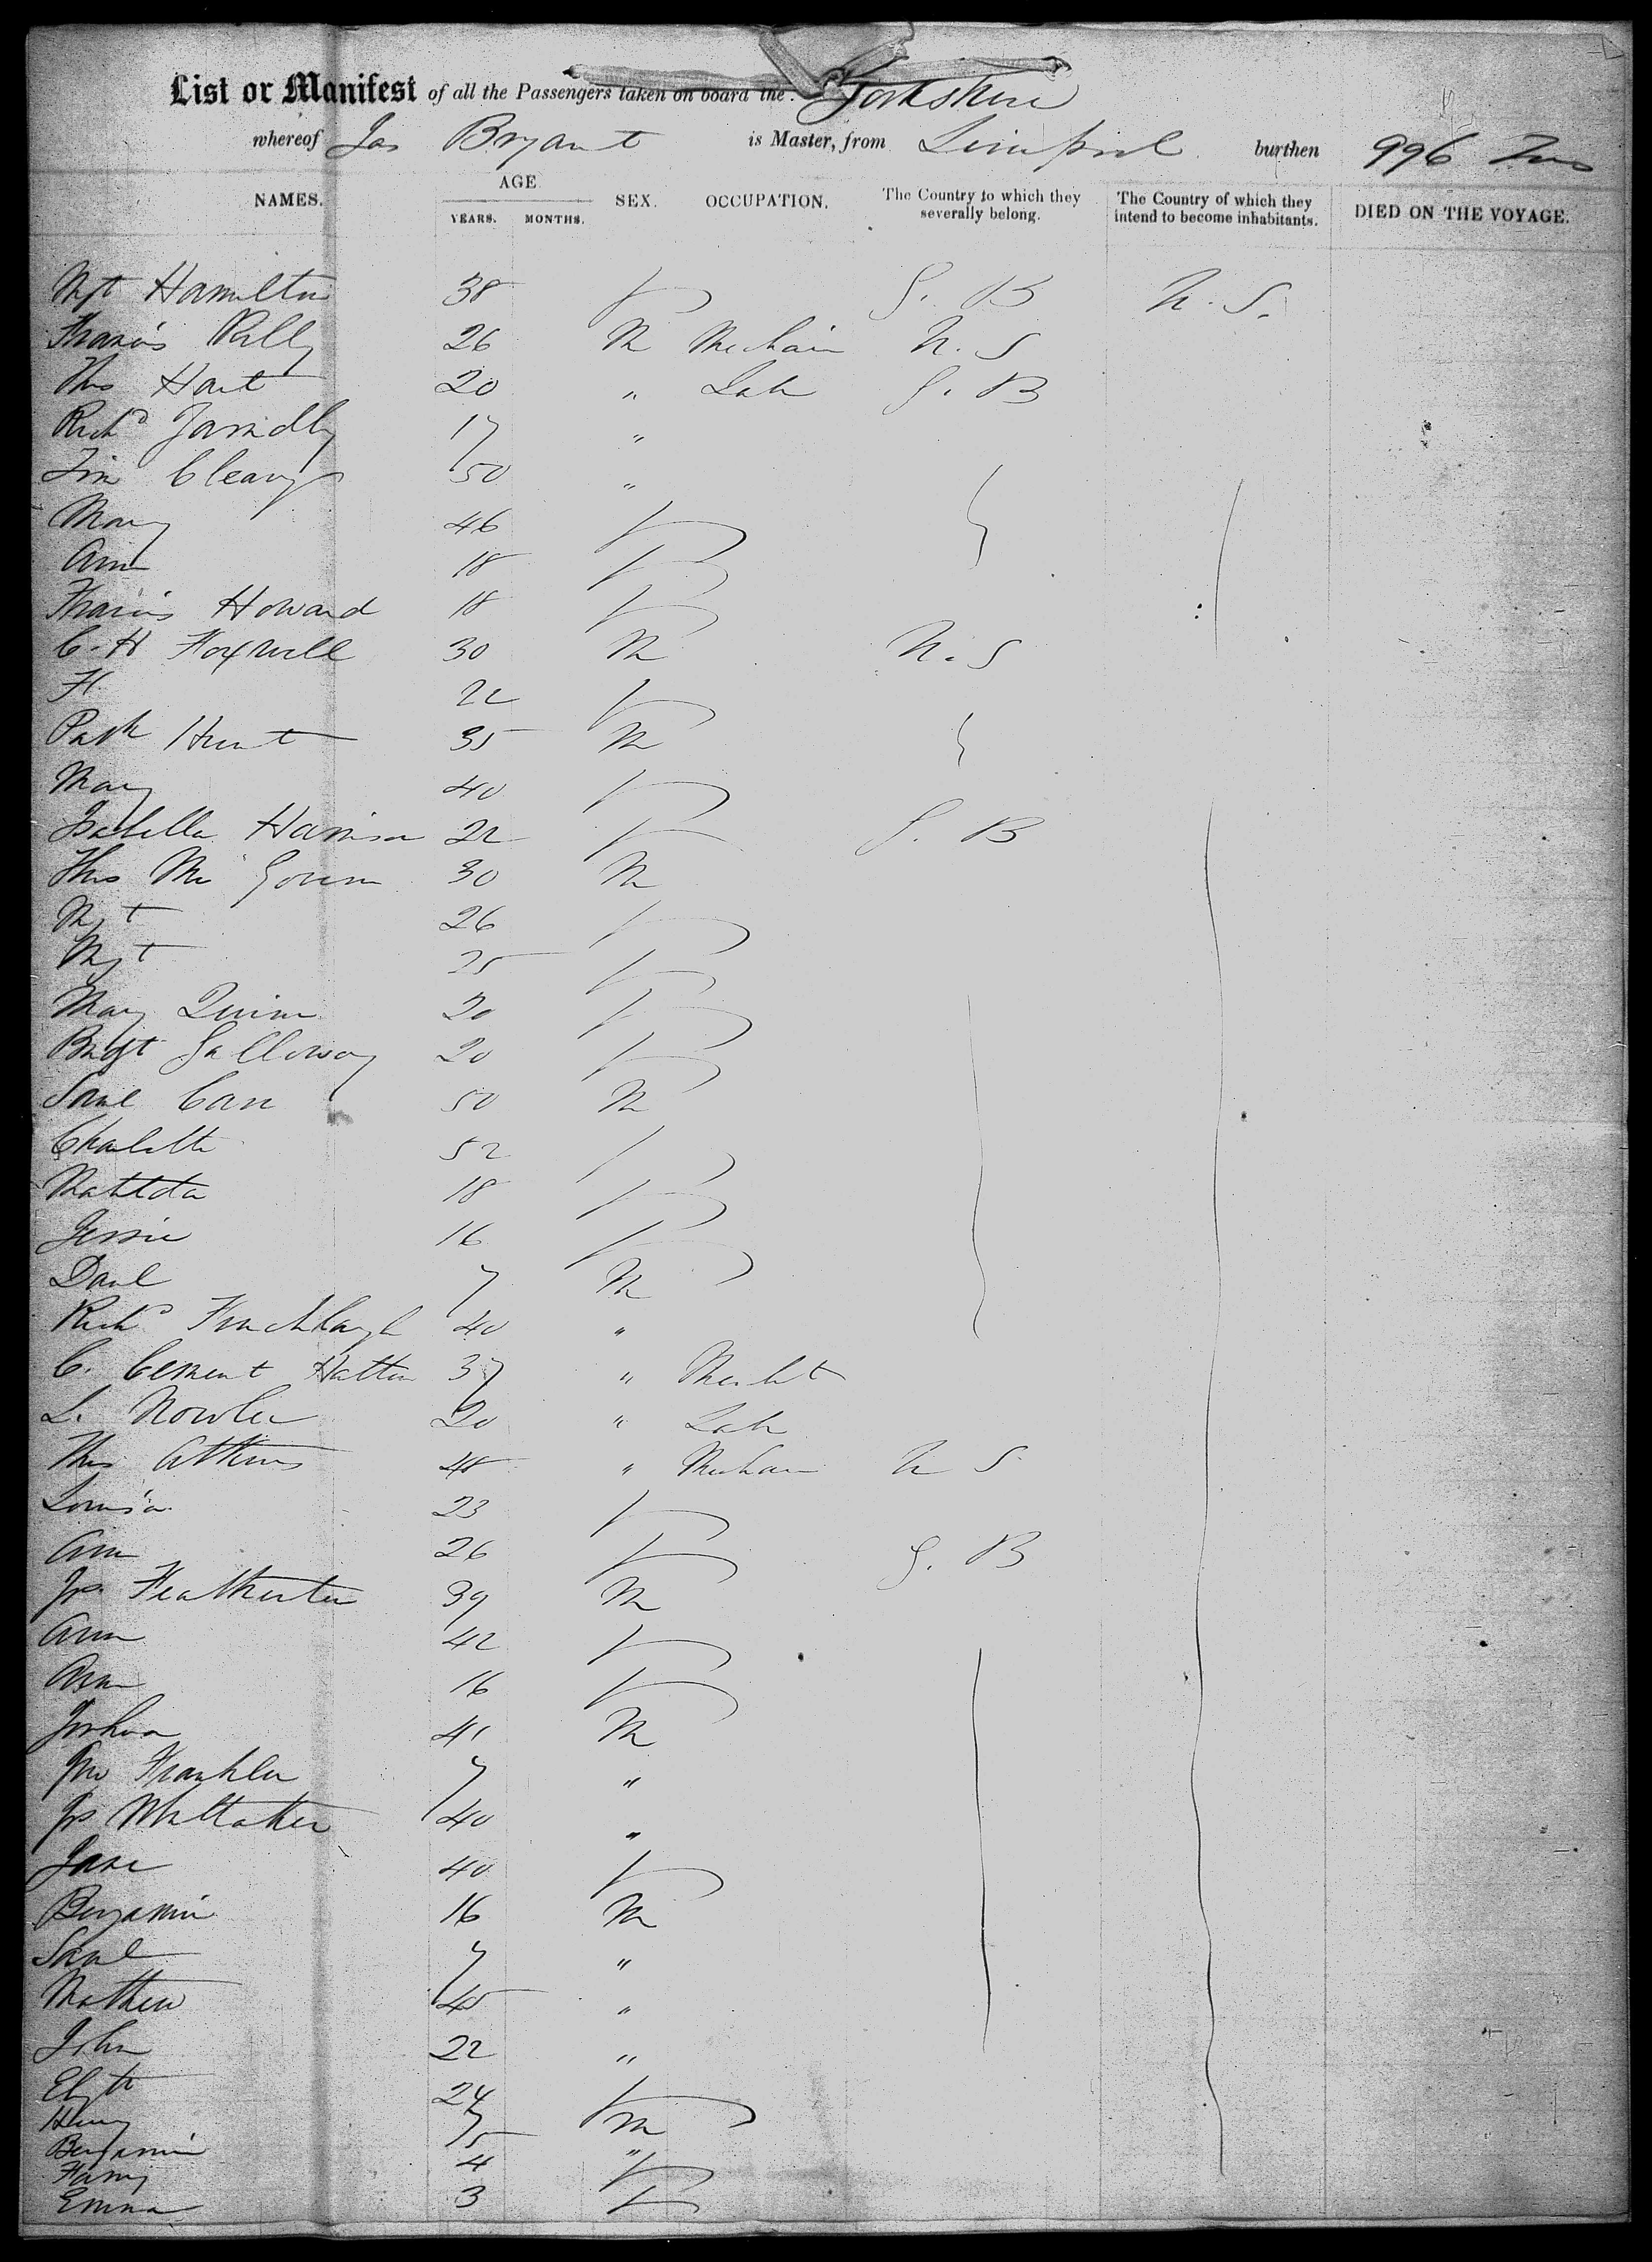 List or Manifest of all the Passengers taken on board the Yorkshire
whereof Jas Bryant is Master, from Liverpool burthen 996 Tons
NAMES. AGE SEX. OCCUPATION. The Country to which they severally belong. The Country of which they intend to become inhabitants. DIED ON THE VOYAGE.
YEARS. MONTHS.
Mgt Hamilton 38 F G. B U. S.
Francis 26 M Mechanic U. S
Thos Hart 20 " Lab G. B
Richd 17 "
Tim Cleary 50 "
Mary 46 F
Ann 18 F
Francis Howard 18 F
C. H Foxwell 30 M U. S
F. 22 F
Patk Hunt 35 M
Mary 40 F
Isabella Harrison 22 F G. B
Thos Mc Govern 30 M
Mgt 26 F
Mgt 25 F
Mary Quinn 20 F
Bridgt Galloway 20 F
Saml Carr 50 M
Charlotte 52 F
Matilda 18 F
Jessie 16 F
Danl 7 M
Richd 40 "
C. Hatton 37 " Mercht
L. Nowlen 20 " Lab
Thos Atkins 48 " Mechanic U S
Louisa 23 F
Ann 26 F G. B
Jos. Featherston 39 M
Ann 42 F
Ann 16 F
Joshua 41 M
Jno 7 "
Jos Whittaker 40 "
Jane 40 F
Benjamin 16 M
Saml 7 "
Mathew 45 "
John 22 "
Elizth 24 F
Henry 75 M
Benjamin 4 "
Fanny F
Emma 3 F